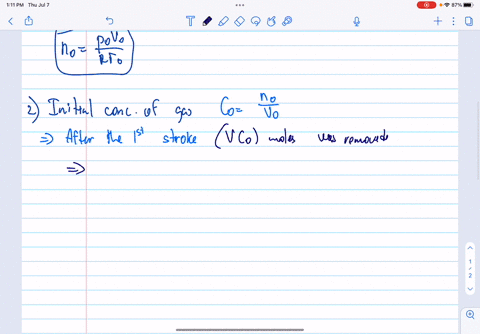 1:11 PM Thu Jul 7
87%
n₀ = P₀V₀ / RT₀
2) Initial conc. of gas C₀ = n₀ / V₀
⇒ After the 1st stroke (VC₀) moles was removed
⇒
1
2